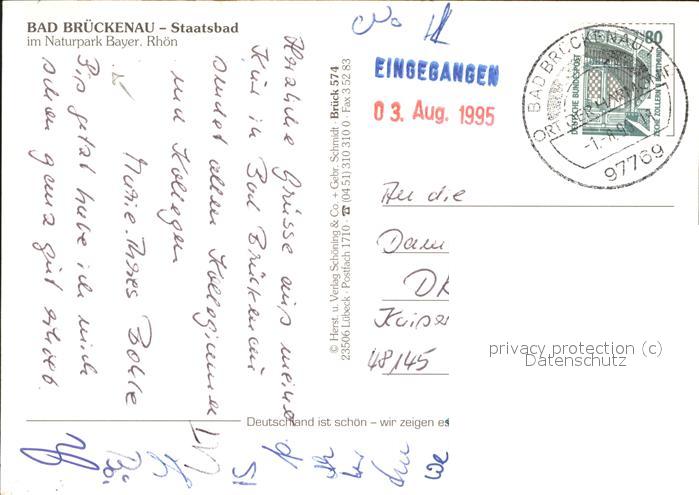 BAD BRÜCKENAU – Staatsbad
im Naturpark Bayer. Rhön
Herzliche Grüsse aus meiner
Kur in Bad Brückenau
sendet allen Kolleginnen
und Kollegen
Bohle
Bis jetzt habe ich mich
schon ganz gut erholt.
© Herst. u. Verlag Schöning & Co. + Gebr. Schmidt · Brück 574
23506 Lübeck · Postfach 1710 · ☎ (04 51) 310 310 0 · Fax 3 52 83
EINGEGANGEN
03. Aug. 1995
80
DEUTSCHE BUNDESPOST
ZECHE ZOLLERN II DORTMUND
BAD BRÜCKENAU 1
97769
An die
Dam
DK
Kaiser
48/145
privacy protection (c)
Datenschutz
Deutschland ist schön – wir zeigen es